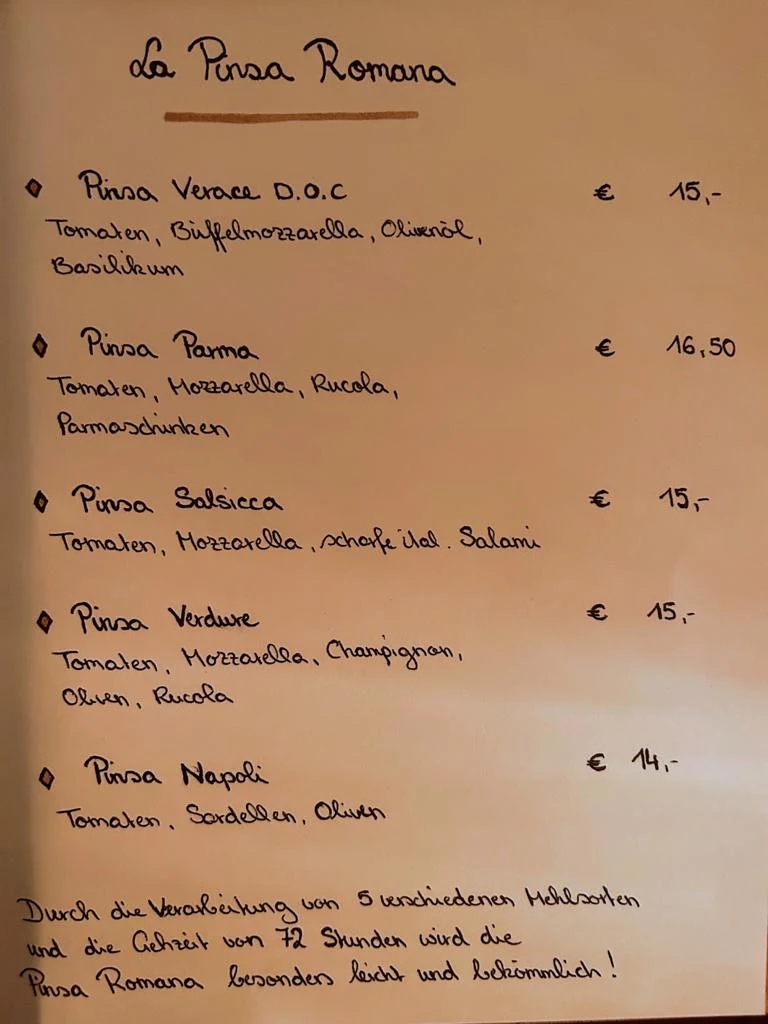 La Pinsa Romana
Pinsa Verace D.O.C € 15,-
Tomaten, Büffelmozzarella, Olivenöl,
Basilikum
Pinsa Parma € 16,50
Tomaten, Mozzarella, Rucola,
Parmaschinken
Pinsa Salsicca € 15,-
Tomaten, Mozzarella, scharfe ital. Salami
Pinsa Verdure € 15,-
Tomaten, Mozzarella, Champignon,
Oliven, Rucola
Pinsa Napoli € 14,-
Tomaten, Sardellen, Oliven
Durch die Verarbeitung von 5 verschiedenen Mehlsorten
und die Gehzeit von 72 Stunden wird die
Pinsa Romana besonders leicht und bekömmlich!